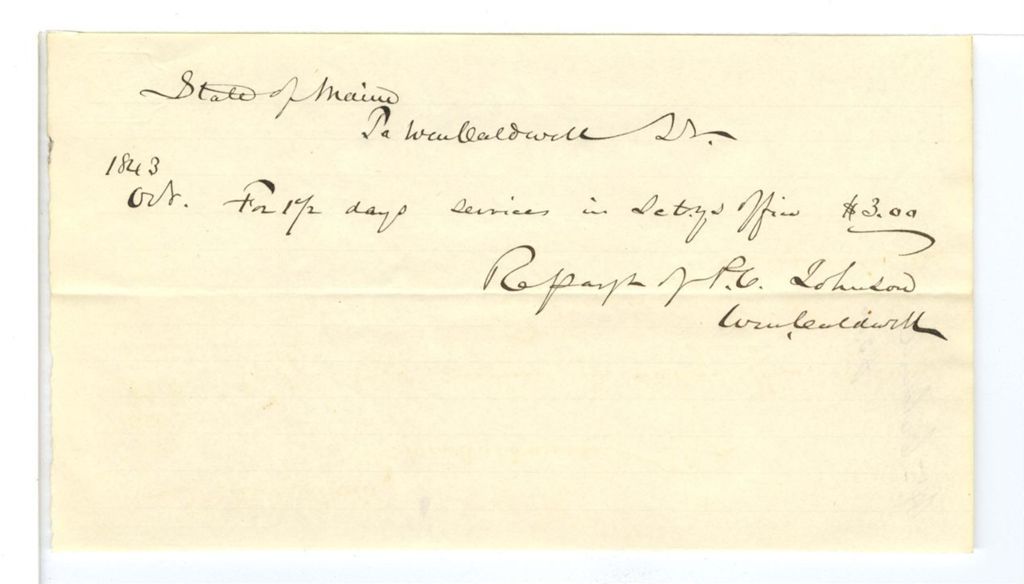 State of Maine
To Wm Caldwell Dr.
1843
Oct. For 1 1/2 days services in Secty's office $3.00
Rec payt of P.C. Johnson
Wm Caldwell